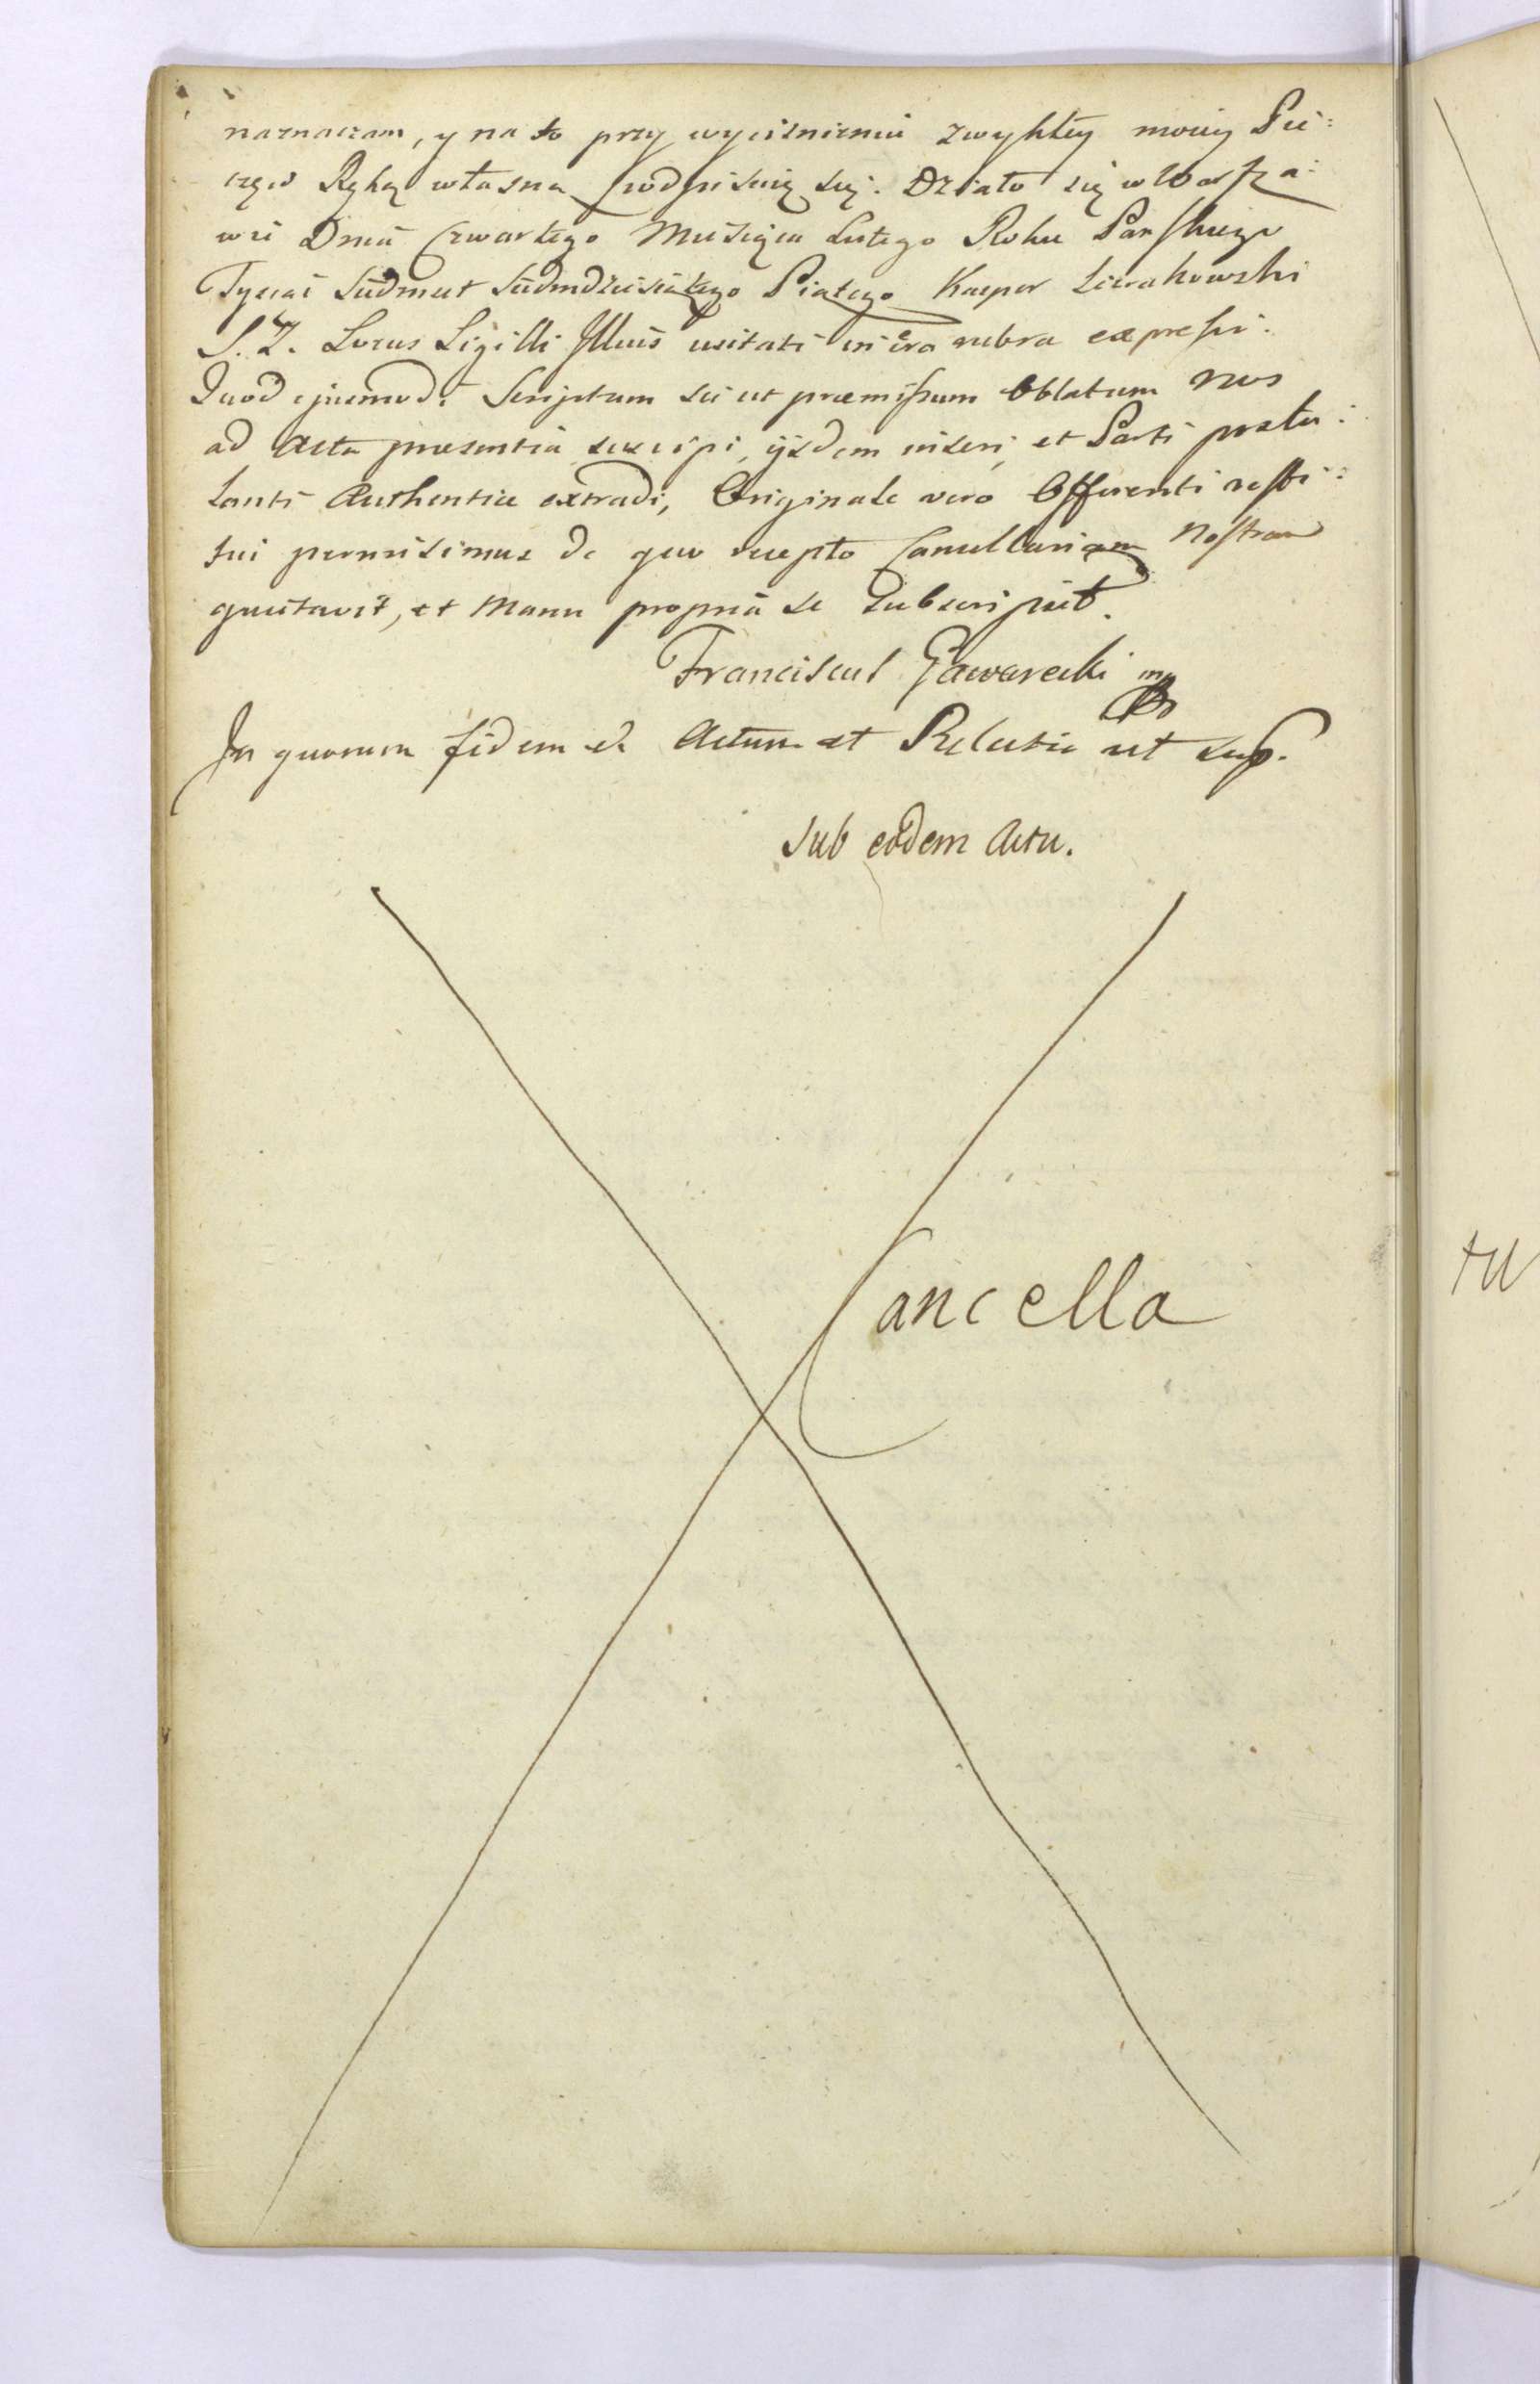 naznaczam, y na to przy wyciśnieniu zwykłey moiey Pie:
częci Ręką własną podpisuię się. Działo się w Warsza:
wie Dnia Czwartego Miesiąca Lutego Roku Pańskiego
Tysiąc Siedmset Siedmdziesiątego Piątego Kasper Lierakowski
S. Z. Locus Sigilli Illius usitati in cera rubra expressi.
Quod ejusmodi Scriptum sic ut præmissum Oblatum nos
ad Acta præsentia suscipi, ijsdem inseri, et Parti postu:
lanti Authentice extradi, Originale vero Offerenti resti:
tui permisimus de quo recepto Cancellariam Nostram
quietavit, et Manu propria se Subscripsit.
Franciscus Gawarecki mp
In quorum fidem &c Actum et Relatio ut sup.
Sub eodem Actu.
Cancella